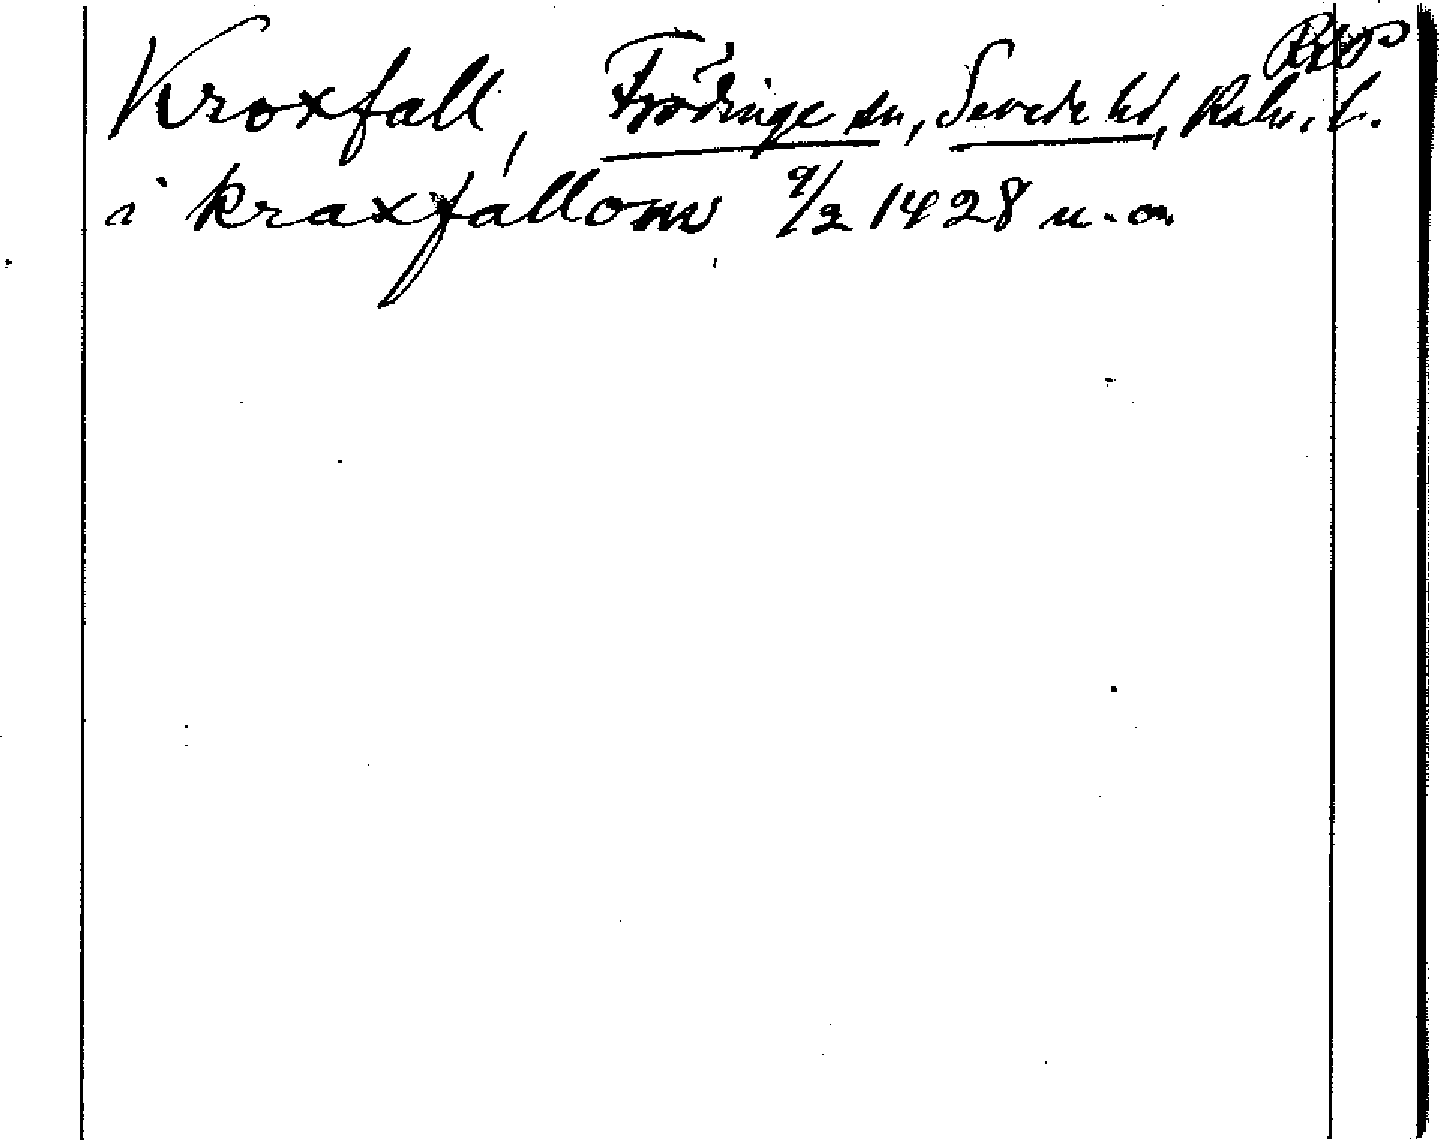 Kroxfall, Frödinge sn, Sevede hd, Kalm. l.
i kraxfallom 9/2 1428 u. a.